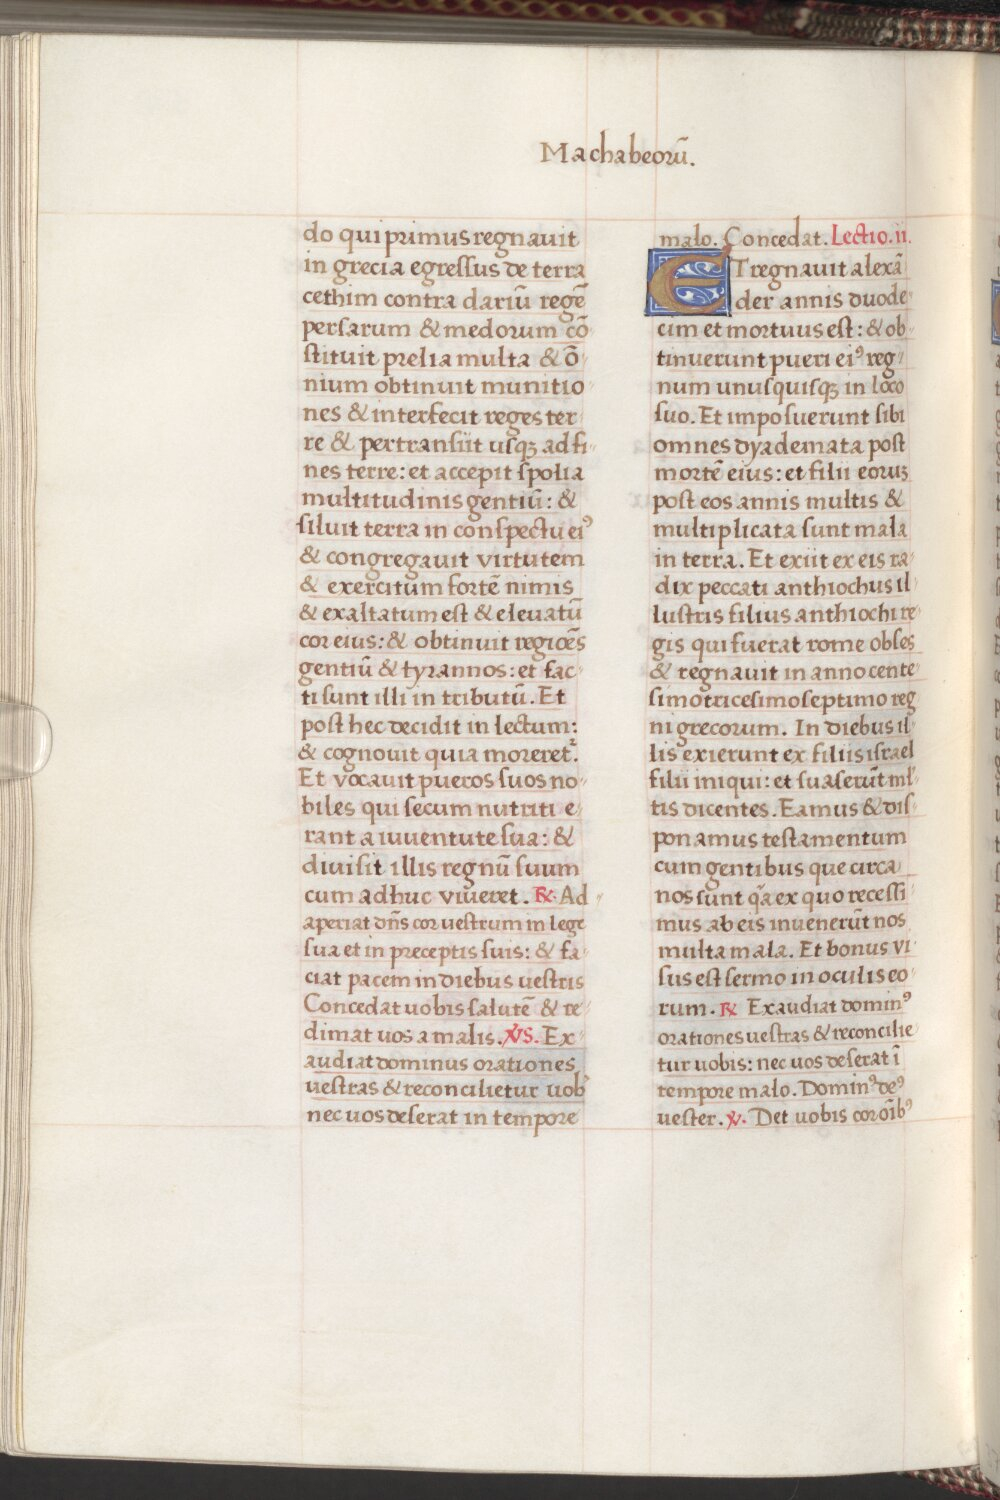 Machabeorū.
do qui primus regnauit
in grecia egressus de terra
cethim contra dariū regē
persarum & medorum cō
stituit prelia multa & ō
nium obtinuit munitio
nes & interfecit reges ter
re & pertransiit usqꝫ ad fi
nes terre: et accepit spolia
multitudinis gentiū: &
siluit terra in conspectu eiꝰ
& congregauit virtutem
& exercitum fortē nimis
& exaltatum est & eleuatū
cor eius: & obtinuit regiões
gentiū & tyrannos: et fac
ti sunt illi in tributū. Et
post hec decidit in lectum:
& cognouit quia moreret᷑.
Et vocauit pueros suos no
biles qui secum nutriti e
rant a iuuentute sua: &
diuisit illis regnū suum
cum adhuc viueret. ℟. Ad
aperiat dn̄s cor uestrum in lege
sua et in preceptis suis: & fa
ciat pacem in diebus uestris
Concedat uobis salutē & re
dimat uos a malis. ℣S. Ex
audiat dominus orationes
uestras & reconcilietur uob᷒
nec uos deserat in tempore
malo. Concedat. Lectio. ii.
ET regnauit alexā
der annis duode
cim et mortuus est: & ob
tinuerunt pueri eiꝰ reg
num unusquisqꝫ in loco
suo. Et imposuerunt sibi
omnes dyademata post
mortē eius: et filii eoruꝫ
post eos annis multis &
multiplicata sunt mala
in terra. Et exiit ex eis ra
dix peccati anthiochus il
lustris filius anthiochi re
gis qui fuerat rome obses
& regnauit in anno cente
simo tricesimo septimo reg
ni grecorum. In diebus il
lis exierunt ex filiis israel
filii iniqui: et suaserūt ml̄
tis dicentes. Eamus & dis
ponamus testamentum
cum gentibus que circa
nos sunt q̄a ex quo recessi
mus ab eis inuenerūt nos
multa mala. Et bonus vi
sus est sermo in oculis eo
rum. ℟ Exaudiat dominꝰ
orationes uestras & reconcilie
tur uobis: nec uos deserat ī
tempore malo. Dominꝰ deꝰ
uester. ℣. Det uobis cor oīb᷒